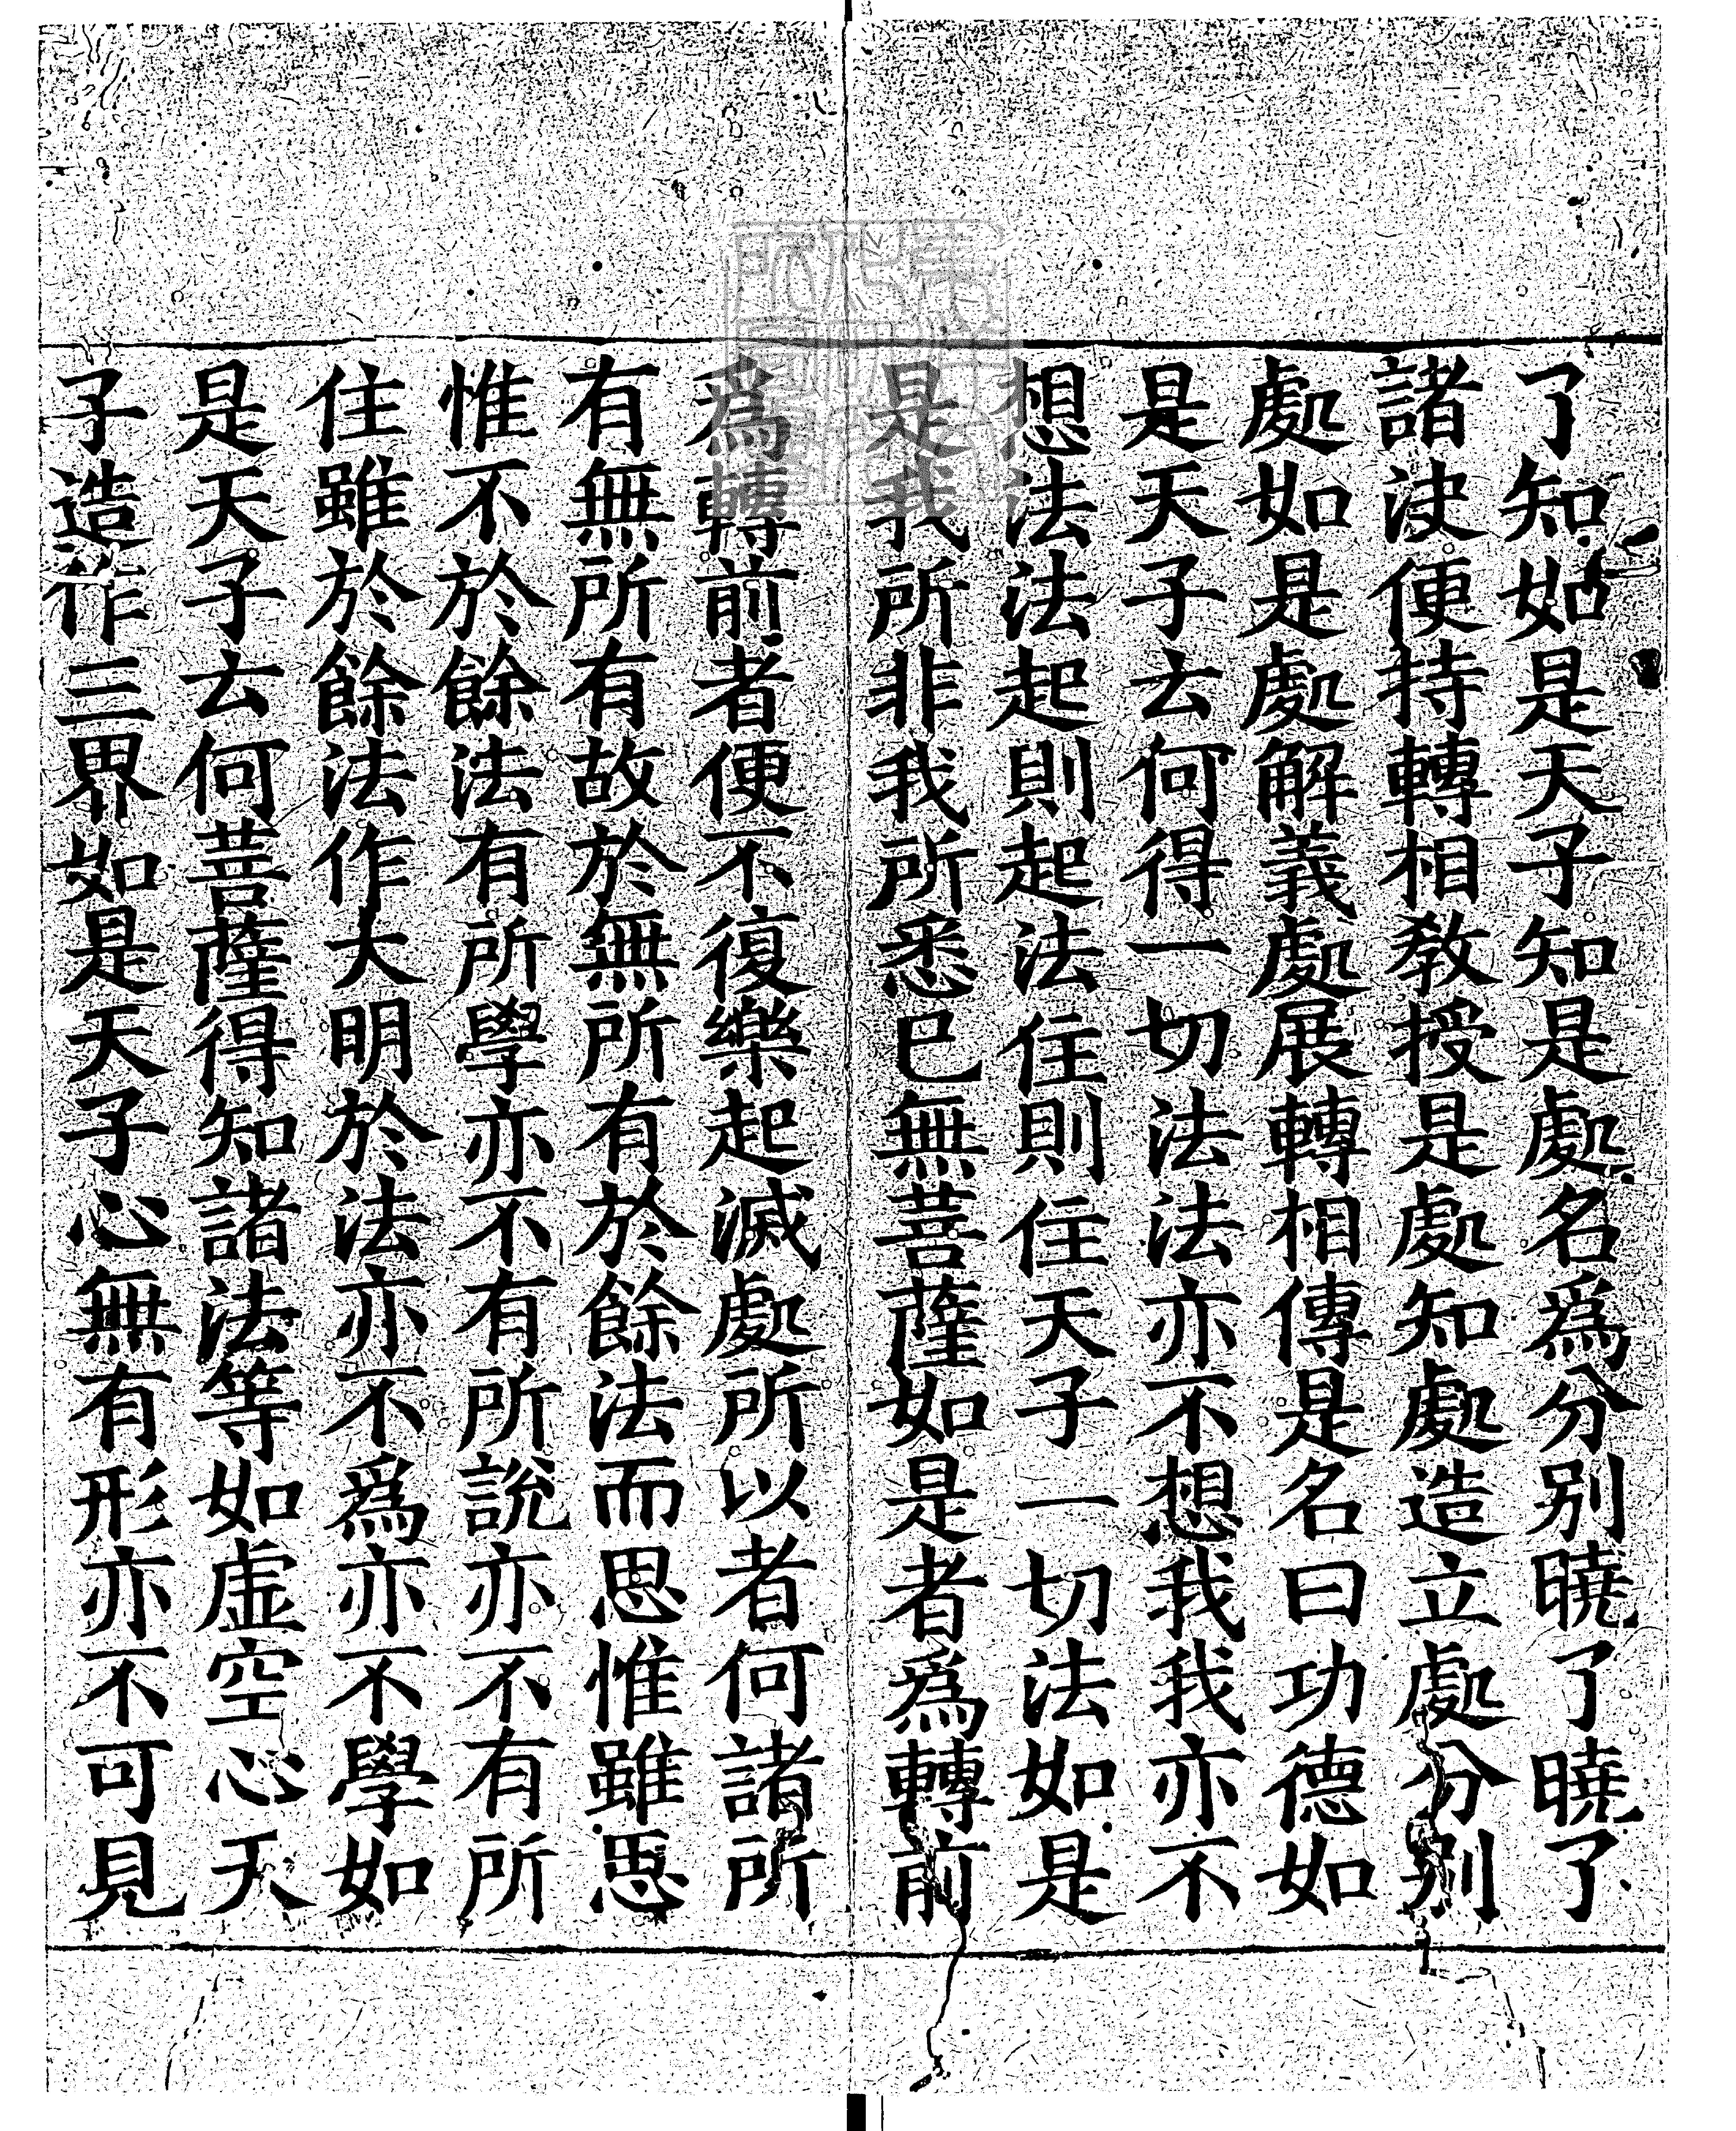 了知如是天子知是處名爲分別曉了曉了
諸決便持轉相教授是處知處造立處分別
處如是處解義處展轉相傳是名曰功德如
是天子去何得一切法法亦不想我我亦不
想法法起則起法住則住天子一切法如是
是我所非我所悉已無菩薩如是者爲轉前
爲轉前者便不復樂起滅處所以者何諸所
有無所有故於無所有於餘法而思惟雖思
惟不於餘法有所學亦不有所說亦不有所
住雖於餘法作大明於法亦不爲亦不學如
是天子去何菩薩得知諸法等如虛空心天
子造作三界如是天子心無有形亦不可見